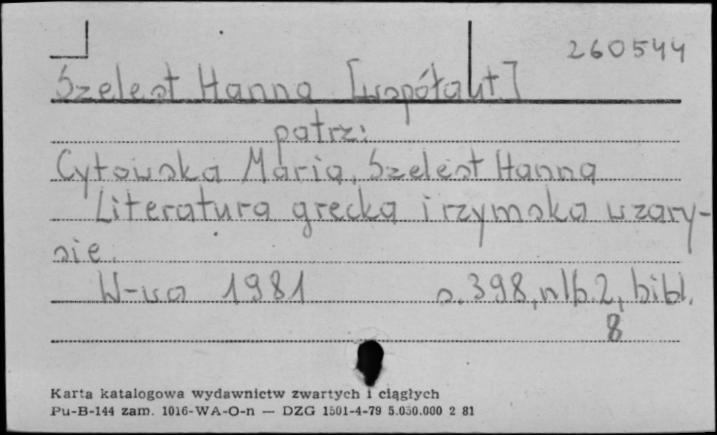 260544
Szelest Hanna [współaut.]
patrz:
Cytowska Maria, Szelest Hanna
Literatura grecka i rzymska w zary-
sie.
W-wa 1981 s. 398, nlb. 2, bibl.
8
Karta katalogowa wydawnictw zwartych i ciągłych
Pu-B-144 zam. 1016-WA-O-n — DZG 1501-4-79 5.050.000 2 81